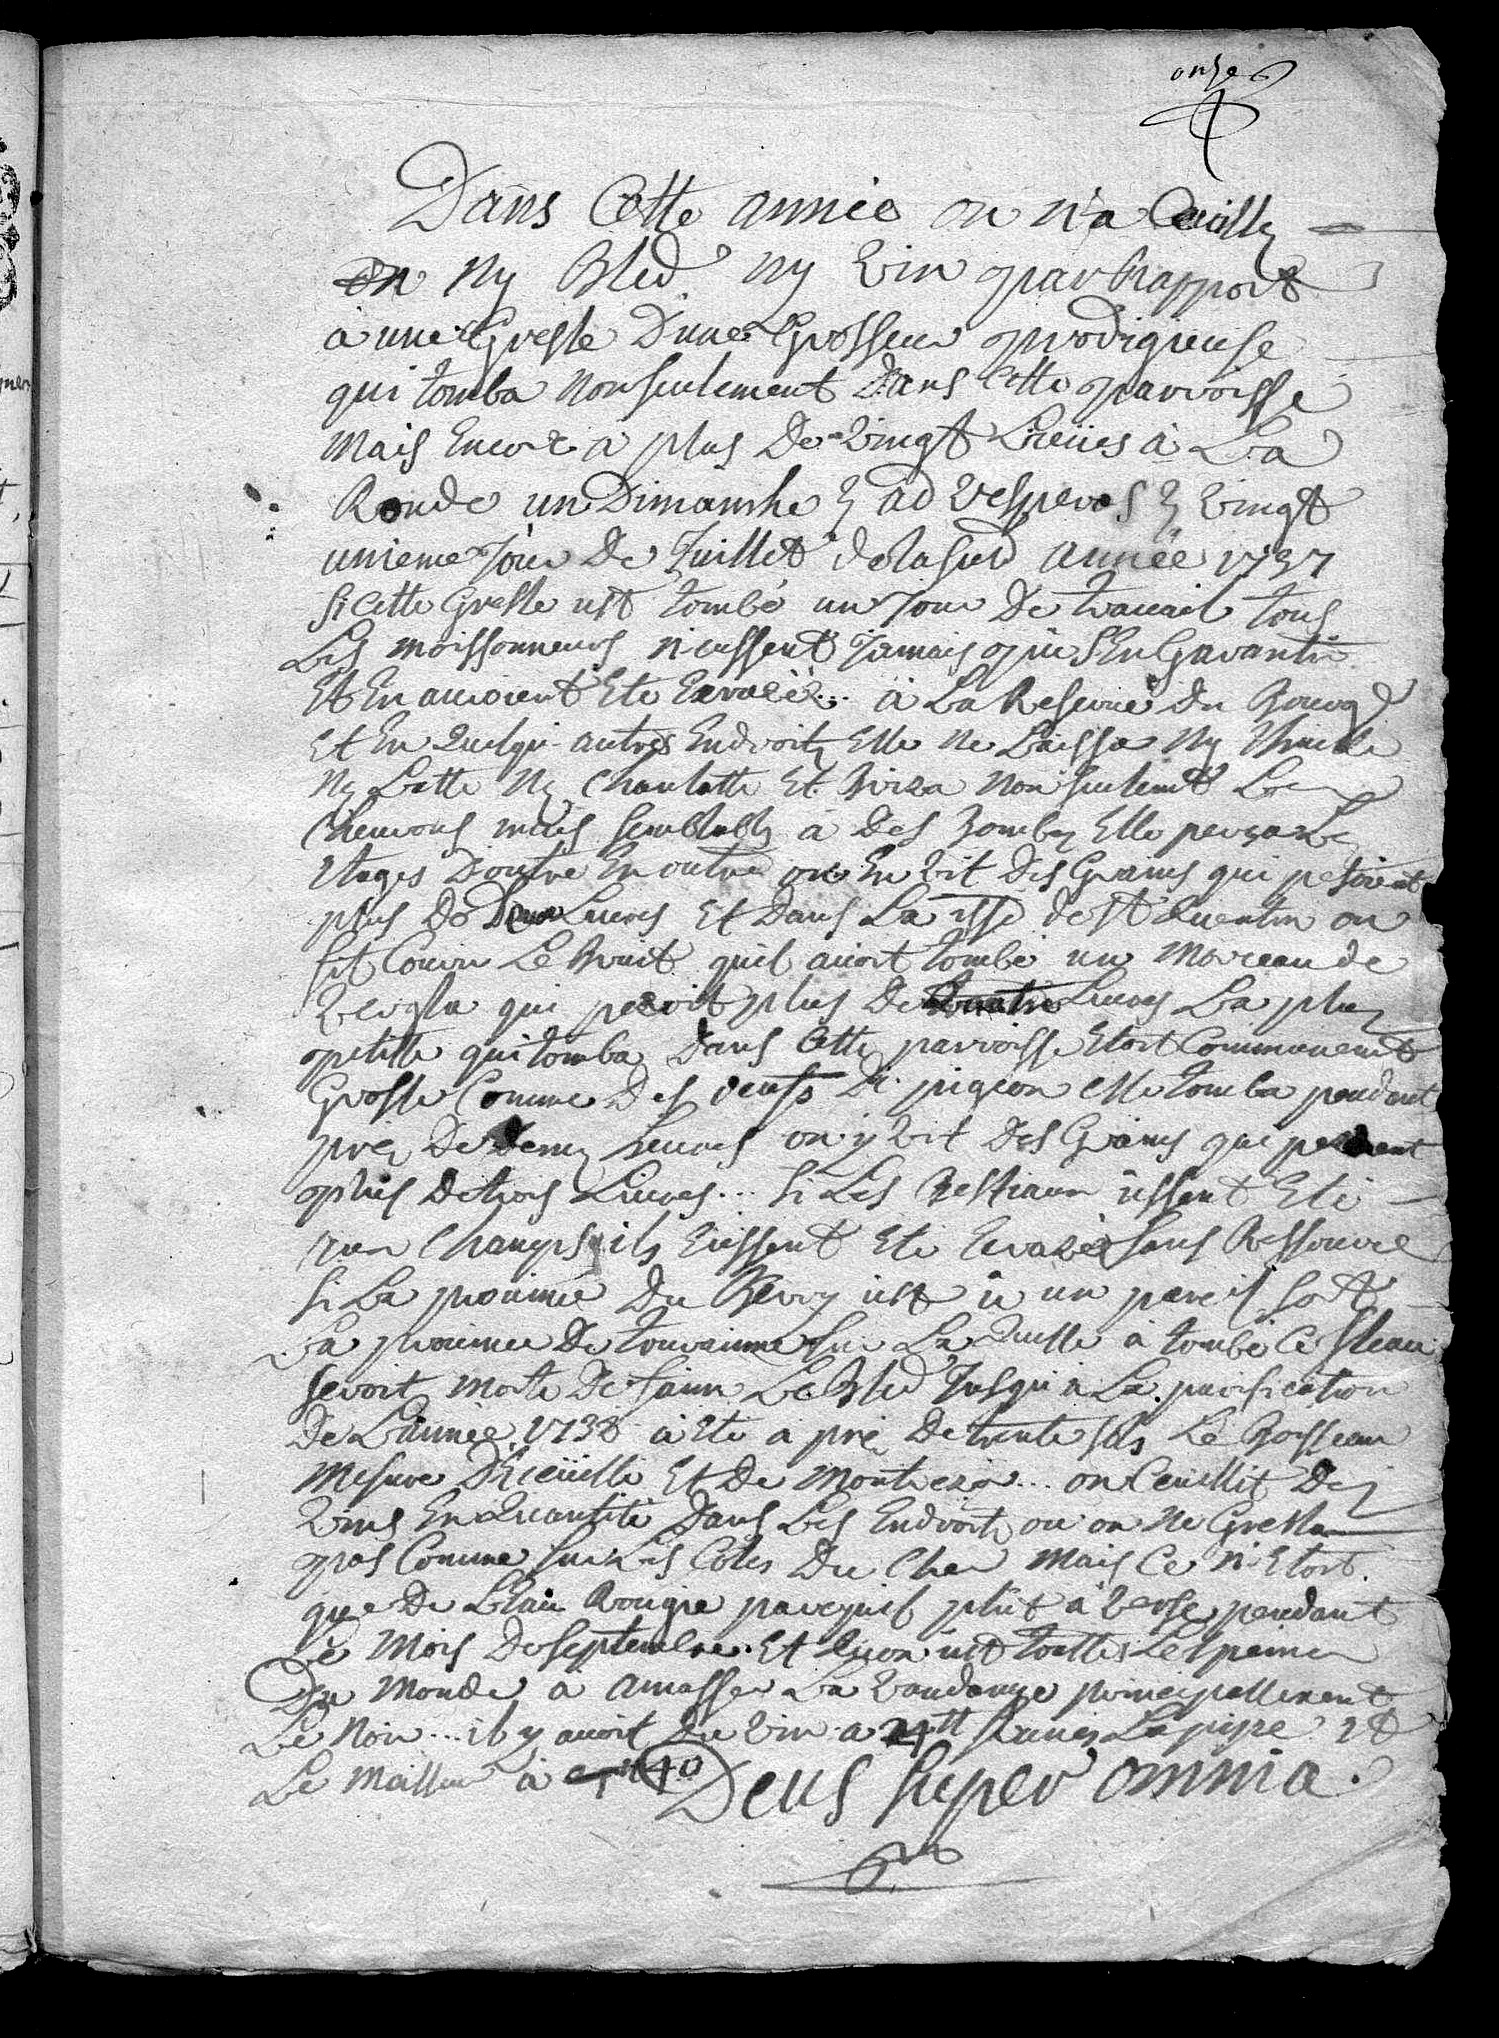 onze
Dans Cette année on n'a Ceuilly
on Ny Bled ny vin par Rapport
a une Gresle D'une Grosseur prodigieuse
qui tomba non seulement Dans Cette parroisse
Mais Encore a plus De vingt Lieües à La
Ronde un Dimanche ad vesperas vingt
unieme Jour De Juillet de la sud année 1737
si Cette Gresle ust tombé un Jour De travail tous
Les moissonneurs n'eussent Jamais pu s'En Garantir
Et En auroient Eté Ecrazéz ... à La du Bourg
Et En quelqu'autres Endroits Elle ne Laissa Ny thuille
Ny Latte Ny Charlatte Et Briza non seulemt Les
Cheurons mais semblable à Des Bombes Elle perça Les
Etages D'outre En outre on En vit Des Grains qui pesoient
plus De Deux Liures Et Dans La psse de St Quentin on
fit Courir Le Bruit quil auoit tombé un Morceau de
verglas qui pezoit plus De quatre Liures La plus
petitte qui tomba Dans Cette parroisse Etoit Communement
Grosse Comme Des oeufs De pigeon elle tomba pendant
pres De Demy heures on y vit Des Grains qui pezoient
plus De trois Liures ... si Les Bestiaux ussent Eté
aux Champs ils Eussent Eté Ecrazé sans Ressource
si La prouince Du Berry ust u un pareil sort
La prouince De touraine sur Laquelle à tombé Ce fleau
seroit morte De faim Le Bled Jusqu'a La purification
De L'année 1738 à Eté a pres De trente sols Le Boisseau
Mesure D'Ecüeillé Et De Montrezor ... on Ceuillit Des
vins En Quantité Dans Les Endroits ou on ne Gresla
pas Comme sur Les Cotes Du Cher Mais Ce n'Etoit
que De L'Eau Rougie parcequil plût à verse pendant
Le Mois De septembre Et qu'on ust toutte Les peines
Du Monde a amasser La vandange principallement
Le Noir ... il y auoit Du vin a 24tt La pipe Et
Le Meilleur a 40 Deus super omnia.